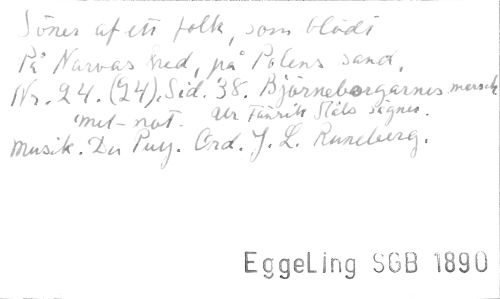 Söner af ett folk, som blödt
På Narvas hed, på Polens sand.
Nr. 24. (24). Sid. 38. Björneborgarnes marsch
met-not. Ur Fänrik Ståls sägner.
Musik. Du Puy. Ord. J. L. Runeberg.
EggeLing SGB 1890